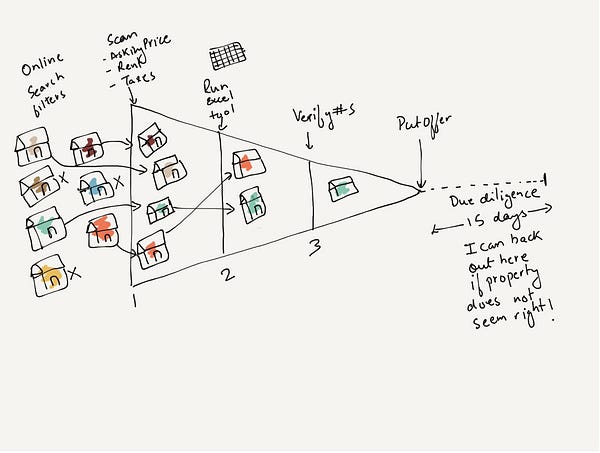 Online
Search
filters
Scan
- Asking Price
- Rent
- Taxes
Run
excel
tool
Verify #s
Put Offer
x
x
x
1
2
3
Due diligence
15 days
I can back
out here
if property
does not
seem right!